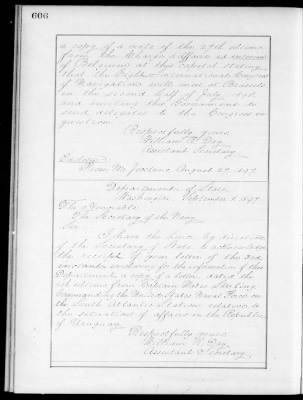 606
a copy of a note of the 29th ultimo
from the Chargé d'affaires ad interim
of Belgium at this capital stating
that the Eighth International Congress
of Navigation will meet at Brussels
in the second half of July, 1898
and inviting this Government to
send delegates to the Congress in
question.
Respectfully yours,
William R. Day,
Assistant Secretary.
Enclosure:
From Mr. August 29, 1897.
Department of State,
Washington, September 8, 1897.
The Honorable
The Secretary of the Navy.
Sir:
I have the honor, by direction
of the Secretary of State, to acknowledge
the receipt of your letter of the 3rd
instant enclosing for the information of this
Department a copy of a letter dated the
ultimo from Captain Yates Stirling
Commanding the United States Naval Force on
the South Atlantic Station, relative to
the situation of affairs in the Republic
of Uruguay.
Respectfully yours,
William R. Day,
Assistant Secretary.